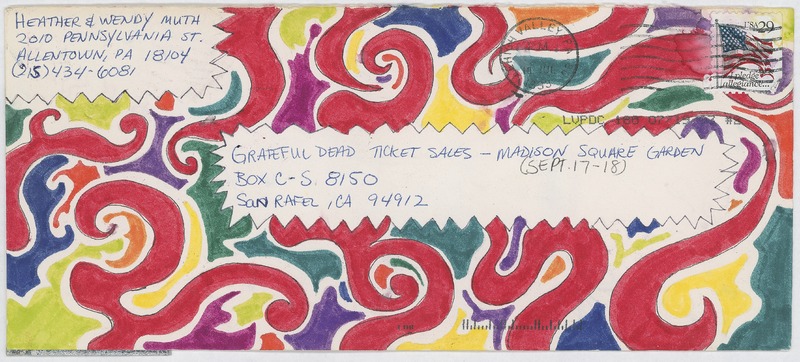 HEATHER & WENDY MUTH
2010 PENNSYLVANIA ST.
ALLENTOWN, PA 18104
(215) 434-6081
USA 29
I pledge
allegiance...
GRATEFUL DEAD TICKET SALES - MADISON SQUARE GARDEN
(SEPT. 17-18)
BOX C-S. 8150
SAN RAFEL, CA 94912